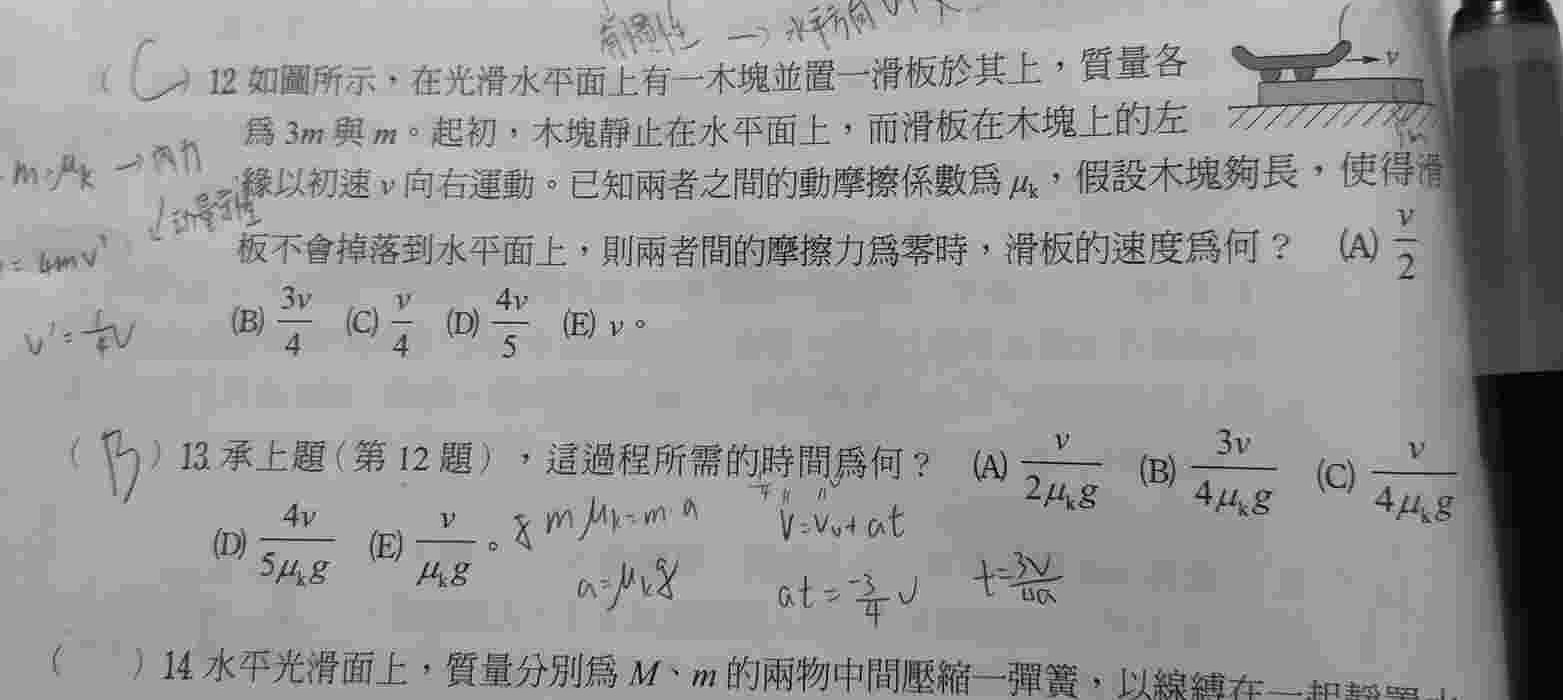 有慣性 → 水平方向
(C) 12 如圖所示，在光滑水平面上有一木塊並置一滑板於其上，質量各
v
為 3m 與 m。起初，木塊靜止在水平面上，而滑板在木塊上的左
m·μk → 內力
緣以初速 v 向右運動。已知兩者之間的動摩擦係數為 μk，假設木塊夠長，使得滑
板不會掉落到水平面上，則兩者間的摩擦力為零時，滑板的速度為何？ (A) v/2
= 4mv'
(B) 3v/4 (C) v/4 (D) 4v/5 (E) v。
v' = 1/4 v
(B) 13. 承上題（第 12 題），這過程所需的時間為何？ (A) v/2μkg (B) 3v/4μkg (C) v/4μkg
(D) 4v/5μkg (E) v/μkg。
g m μk = m a
V = V0 + at
a = μk g
at = -3/4 v
t = 3V/4a
( ) 14 水平光滑面上，質量分別為 M、m 的兩物中間壓縮一彈簧，以線縛在一起靜置